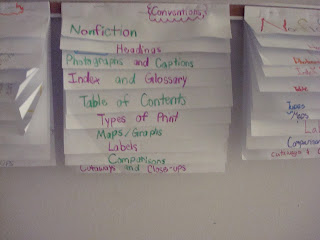 Conventions
Nonfiction
Headings
Photographs and Captions
Index and Glossary
Table of Contents
Types of Print
Maps/Graphs
Labels
Comparisons
Cutaways and Close-ups
Types
Maps
La
Comparison
Cutaways & C